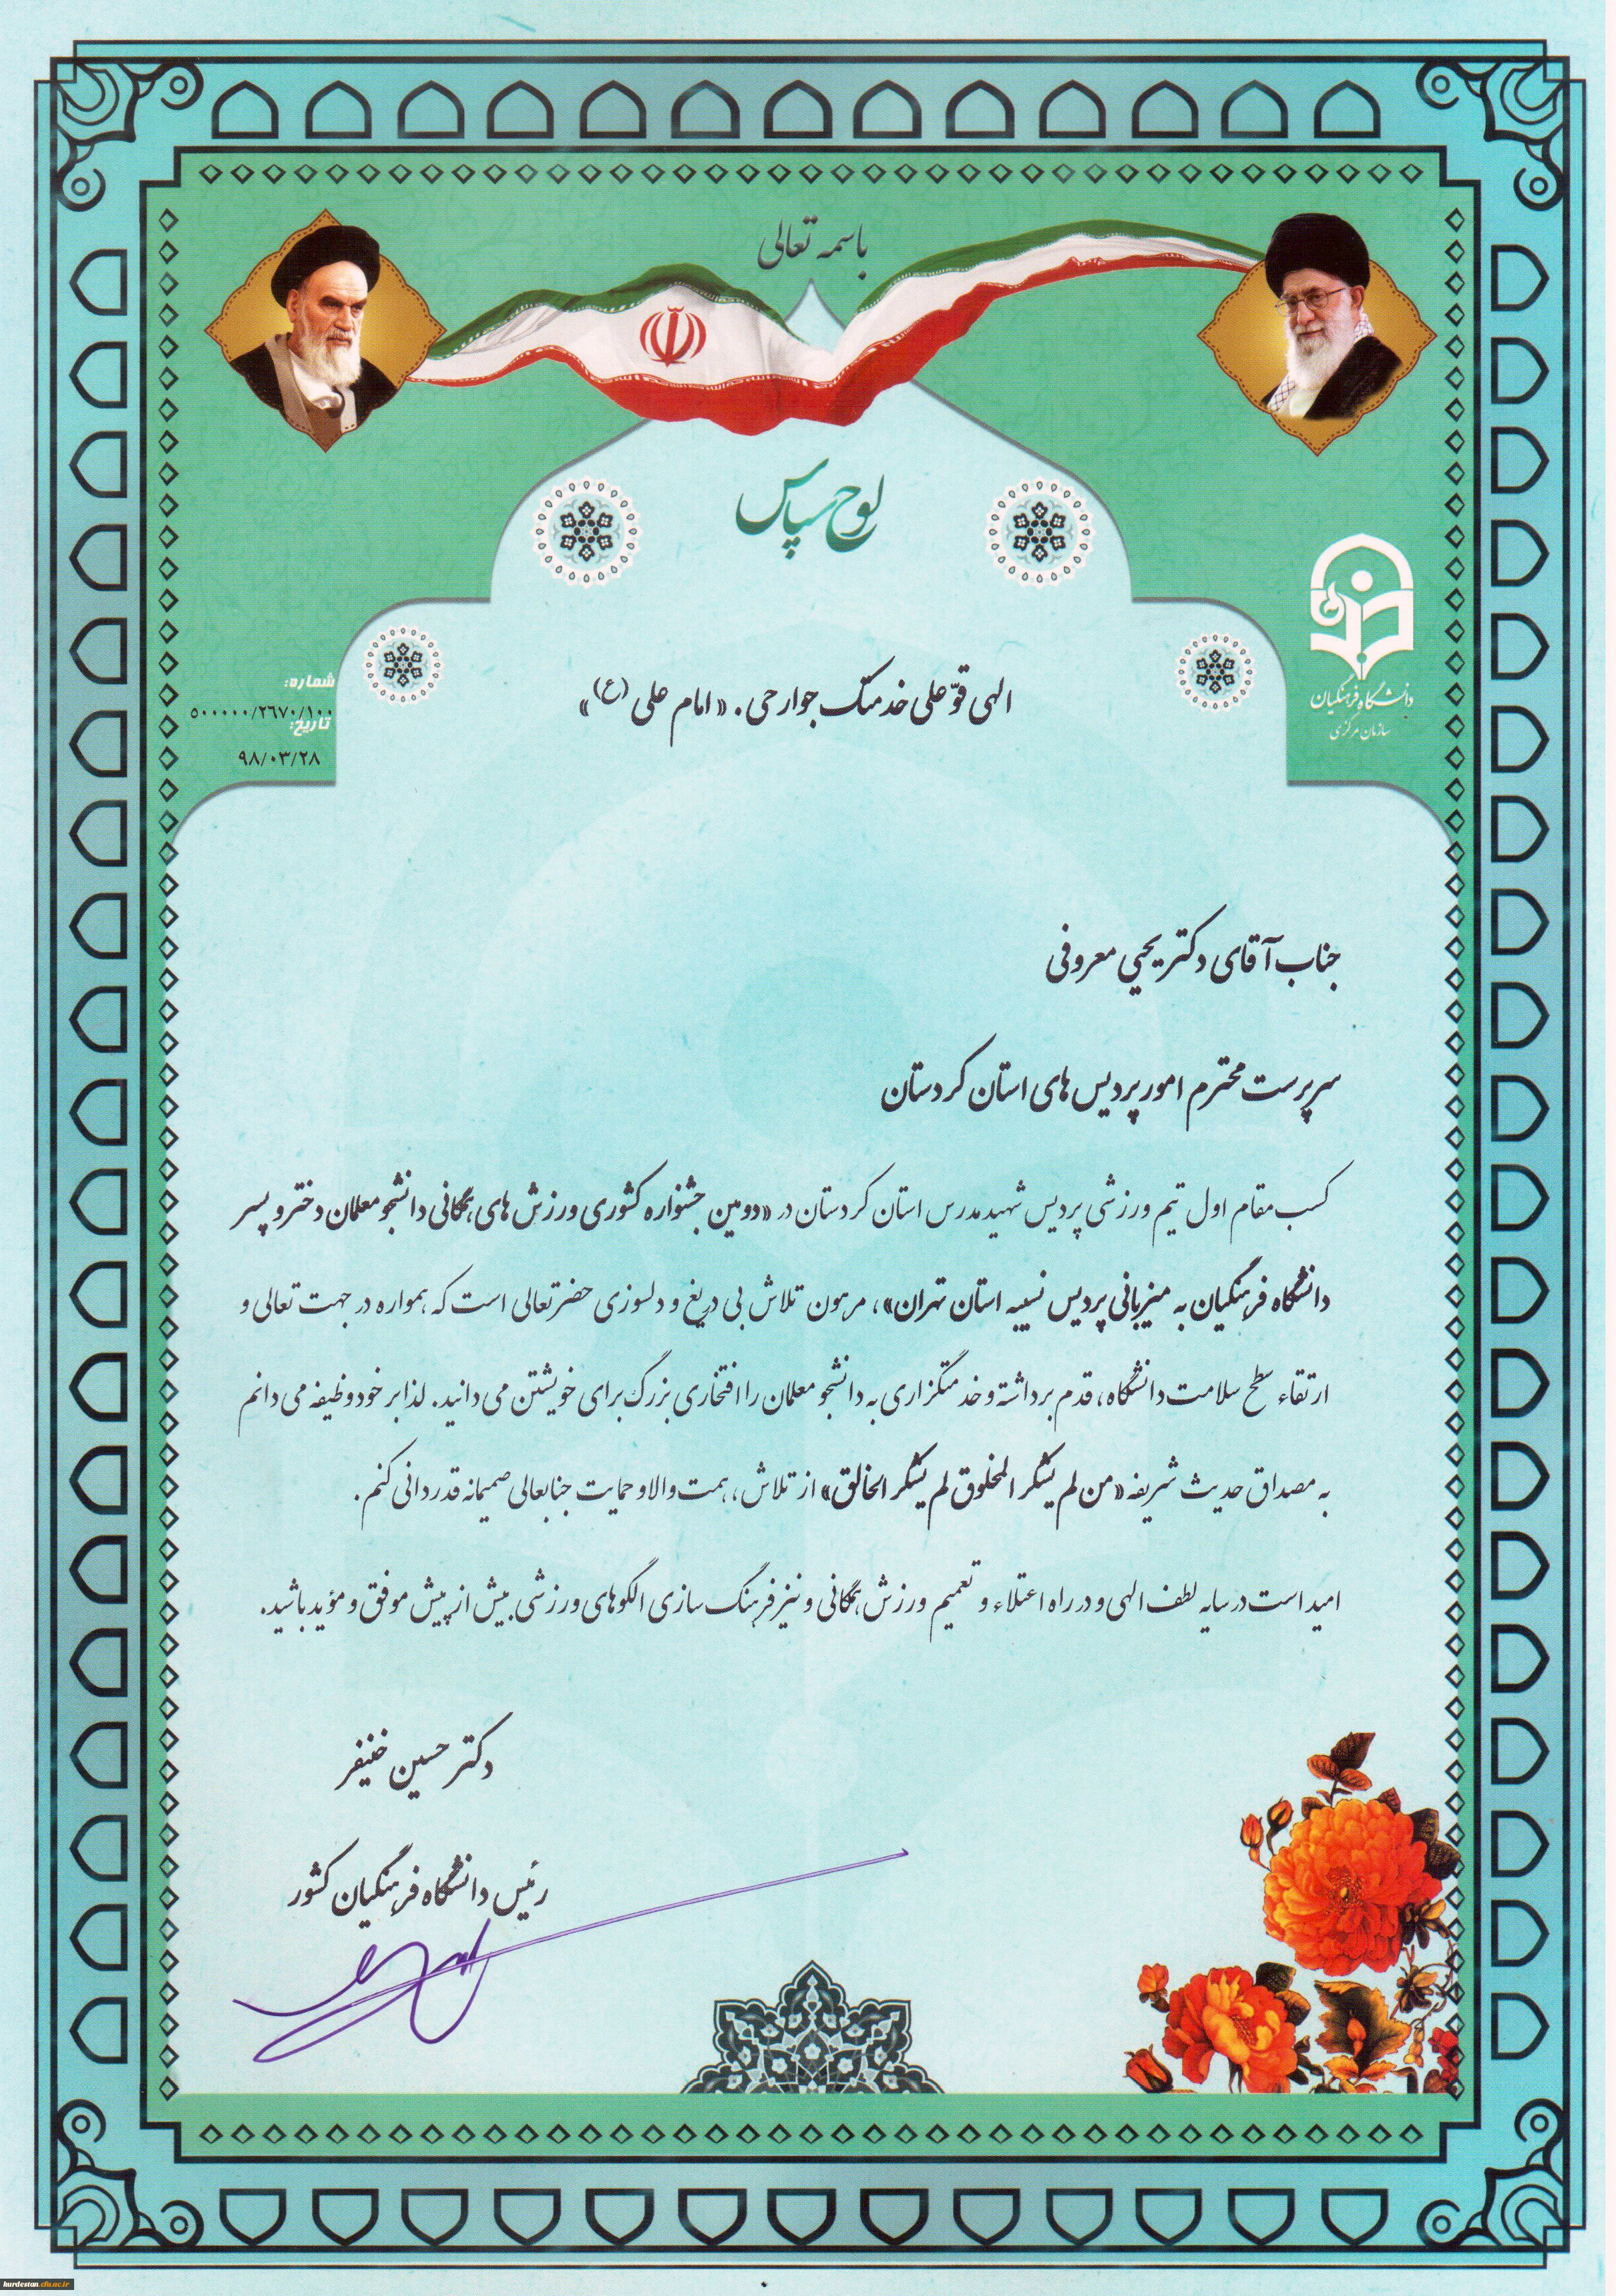 باسمه تعالی
لوح سپاس
دانشگاه فرهنگیان
سازمان مرکزی
شماره:
۵۰۰۰۰۰/۲۶۷۰/۱۰۰
تاریخ:
۹۸/۰۳/۲۸
الهی قوّ علی خدمتک جوارحی. «امام علی (ع)»
جناب آقای دکتر یحیی معروفی
سرپرست محترم امور پردیس های استان کردستان
کسب مقام اول تیم ورزشی پردیس شهید مدرس استان کردستان در «دومین جشنواره کشوری ورزش های همگانی دانشجو معلمان دختر و پسر
دانشگاه فرهنگیان به میزبانی پردیس نسیبه استان تهران»، مرهون تلاش بی دریغ و دلسوزی حضرتعالی است که همواره در جهت تعالی و
ارتقاء سطح سلامت دانشگاه، قدم برداشته و خدمتگزاری به دانشجو معلمان را افتخاری بزرگ برای خویشتن می دانید. لذا بر خود وظیفه می دانم
به مصداق حدیث شریفه «من لم یشکر المخلوق لم یشکر الخالق» از تلاش، همت والا و حمایت جنابعالی صمیمانه قدردانی کنم.
امید است در سایه لطف الهی و در راه اعتلاء و تعمیم ورزش همگانی و نیز فرهنگ سازی الگوهای ورزشی بیش از پیش موفق و مؤید باشید.
دکتر حسین خنیفر
رئیس دانشگاه فرهنگیان کشور
kurdestan.cfu.ac.ir